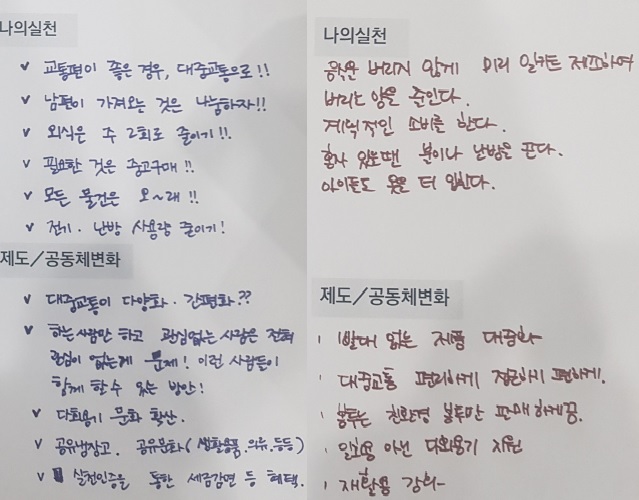 나의실천
✓ 교통편이 좋은 경우, 대중교통으로!!
✓ 남편이 가져오는 것은 나눔하자!!
✓ 외식은 주 2회로 줄이기!!
✓ 필요한 것은 중고구매!!
✓ 모든 물건은 오~래!!
✓ 전기. 난방 사용량 줄이기!
제도/공동체변화
✓ 대중교통이 다양화. 간편화??
✓ 하는사람만 하고 관심없는 사람은 전혀
관심이 없는게 문제! 이런 사람들이
함께 할 수 있는 방안!
✓ 다회용기 문화 확산.
✓ 공유냉장고. 공유문화(생활용품, 의류, 등등)
✓ 실천인증을 통한 세금감면 등 혜택.
나의실천
음식은 버리지 않게 미리 체크하여
버리는 양을 줄인다.
계획적인 소비를 한다.
혼자 있을땐 불이나 난방을 끈다.
아이들도 옷을 더 입힌다.
제도/공동체변화
없는 제품 대중화
대중교통 편리하게 접근하기 편하게.
봉투는 친환경 봉투만 판매하게끔.
일회용 아닌 다회용기 지원
재활용 강화